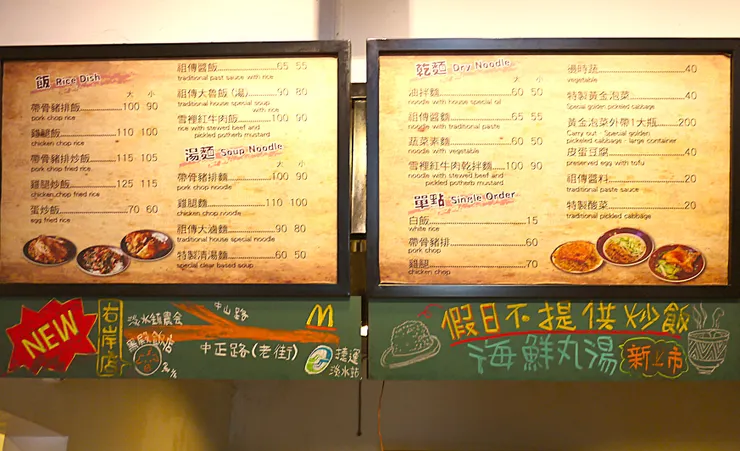 飯 Rice Dish
大 小
帶骨豬排飯 100 90
pork chop rice
雞腿飯 110 100
chicken chop rice
帶骨豬排炒飯 115 105
pork chop fried rice
雞腿炒飯 125 115
chicken chop fried rice
蛋炒飯 70 60
egg fried rice
祖傳醬飯 65 55
traditional past sauce with rice
祖傳大魯飯 (湯) 90 80
traditional house special soup
with rice
雪裡紅牛肉飯 100 90
rice with stewed beef and
pickled potherb mustard
湯麵 Soup Noodle
大 小
帶骨豬排麵 100 90
pork chop noodle
雞腿麵 110 100
chicken chop noodle
祖傳大滷麵 90 80
traditional house special noodle
特製清湯麵 60 50
special clear based soup
乾麵 Dry Noodle
大 小
油拌麵 60 50
noodle with house special oil
祖傳醬麵 65 55
noodle with traditional paste
蔬菜素麵 60 50
noodle with vegetable
雪裡紅牛肉乾拌麵 100 90
noodle with stewed beef and
pickled potherb mustard
單點 Single Order
白飯 15
white rice
帶骨豬排 60
pork chop
雞腿 70
chicken chop
燙時蔬 40
vegetable
特製黃金泡菜 40
Special golden pickled cabbage
黃金泡菜外帶1大瓶 200
Carry out - Special golden
pickeled cabbage - large container
皮蛋豆腐 40
preserved egg with tofu
祖傳醬料 20
traditional paste sauce
特製酸菜 20
traditional pickled cabbage
NEW
右岸店
淡水鎮農會
中山路
中正路(老街)
捷運
淡水站
假日不提供炒飯
海鮮丸湯 新上市